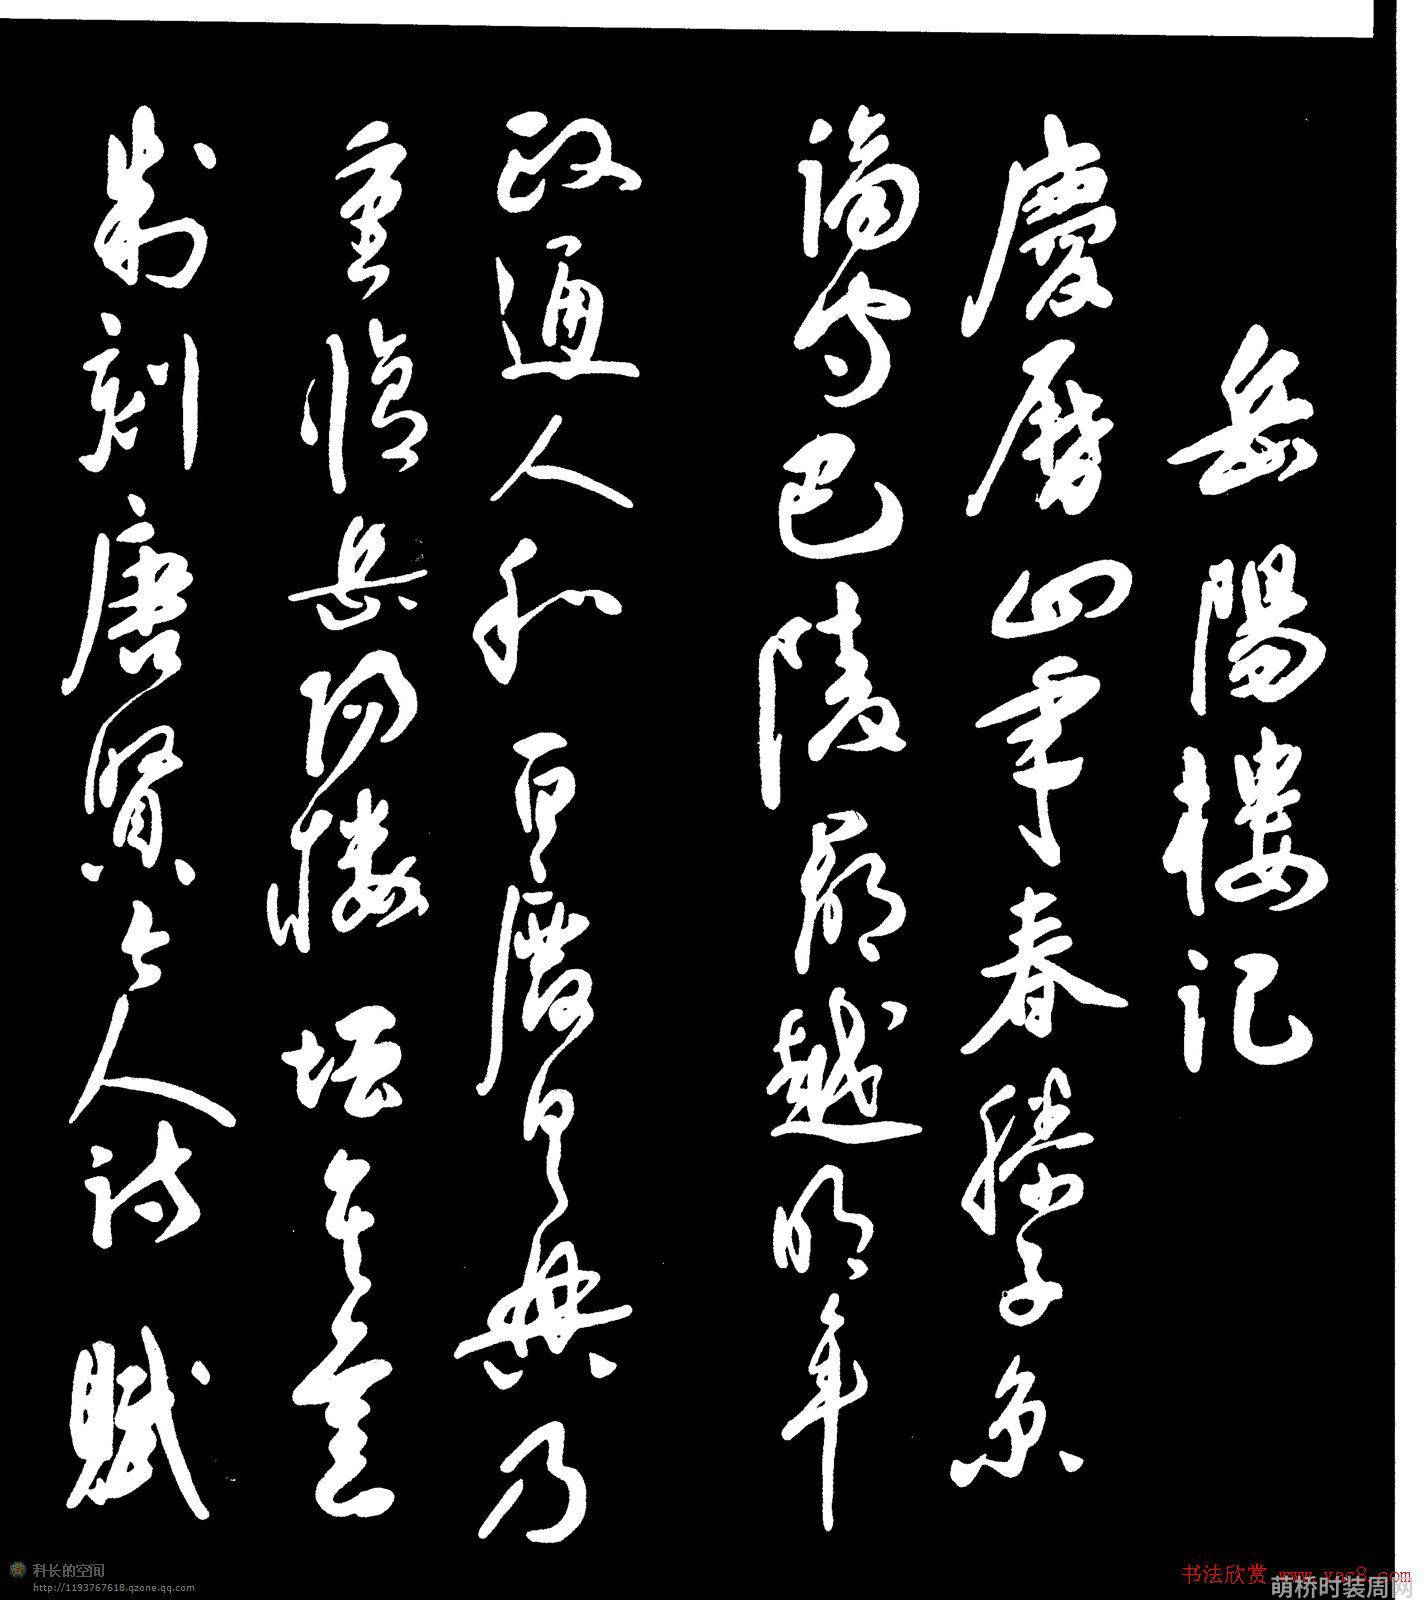 岳陽樓記
慶曆四年春滕子京
謫守巴陵郡越明年
政通人和百廢具興乃
重修岳陽樓增其舊
制刻唐賢今人詩賦
科长的空间
http://1193767618.qzone.qq.com
书法欣赏 www.yac8.com
萌桥时装周网